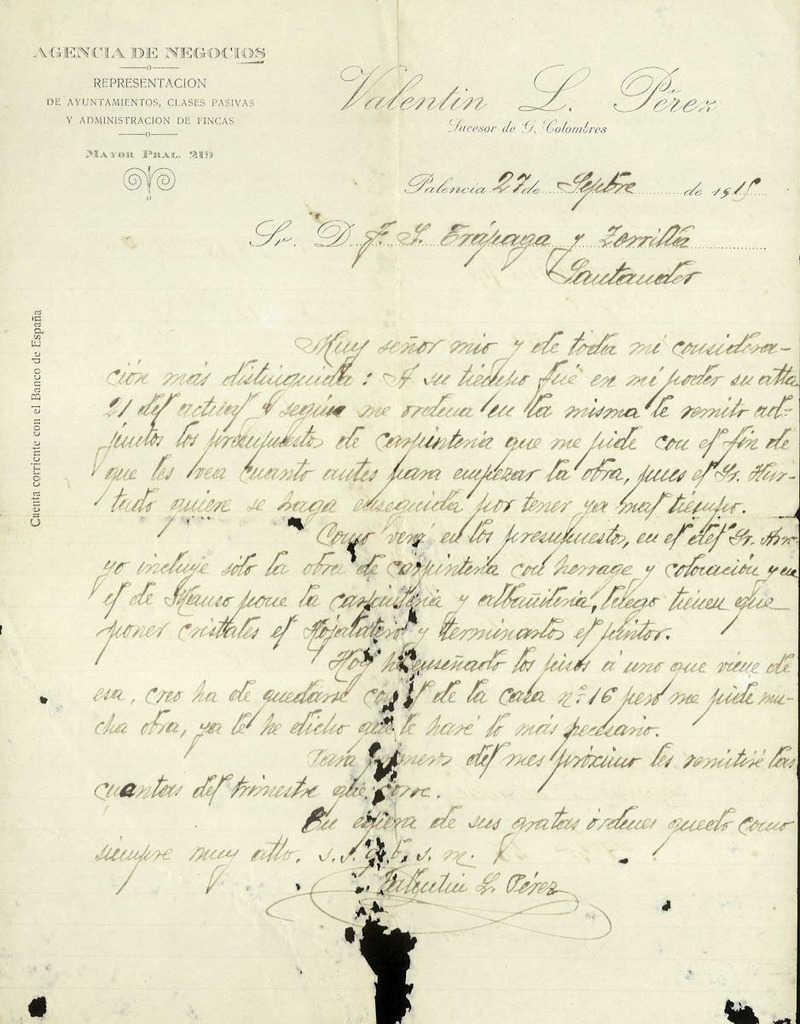 AGENCIA DE NEGOCIOS
REPRESENTACION
DE AYUNTAMIENTOS, CLASES PASIVAS
Y ADMINISTRACION DE FINCAS
MAYOR PRAL. 219
Valentin L. Pérez
Sucesor de G. Colombres
Palencia 27 de Sepbre de 1915
Sr. D. F. S. Trápaga y Zorrilla
Santander
Cuenta corriente con el Banco de España
Muy señor mio y de toda mi considera-
ción más distinguida: A su tiempo fué en mi poder su atta
21 del actual y según me ordena en la misma le remito ad-
juntos los presupuestos de carpinteria que me pide con el fin de
que les vea cuanto antes para empezar la obra, pues el Sr. Hur-
tado quiere se haga enseguida por tener ya mal tiempo.
Como verá en los presupuestos, en el del Sr. Arro-
yo incluye sólo la obra de carpinteria con herrage y colocación y en
el de Manso pone la carpinteria y albañileria, luego tienen que
poner cristales el Hojalatero y terminarlos el pintor.
Hoy he enseñado los pisos á uno que viene de
esa, creo ha de quedarse con el de la casa nº 16 pero me pide mu-
cha obra, ya le he dicho que le haré lo más necesario.
Para primeros del mes próximo les remitiré las
cuentas del trimestre que corre.
En espera de sus gratas órdenes quedo como
siempre muy atto. s. s. q. b. s. m.
Valentin L. Pérez